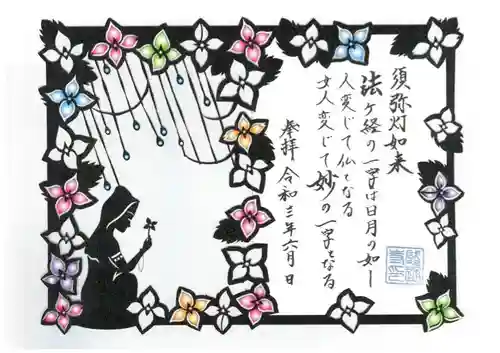 須弥灯如来
法ヶ経の一字は日月の如し
人変じて仏となる
女人変じて妙の一字となる
奉拝 令和三年六月 日